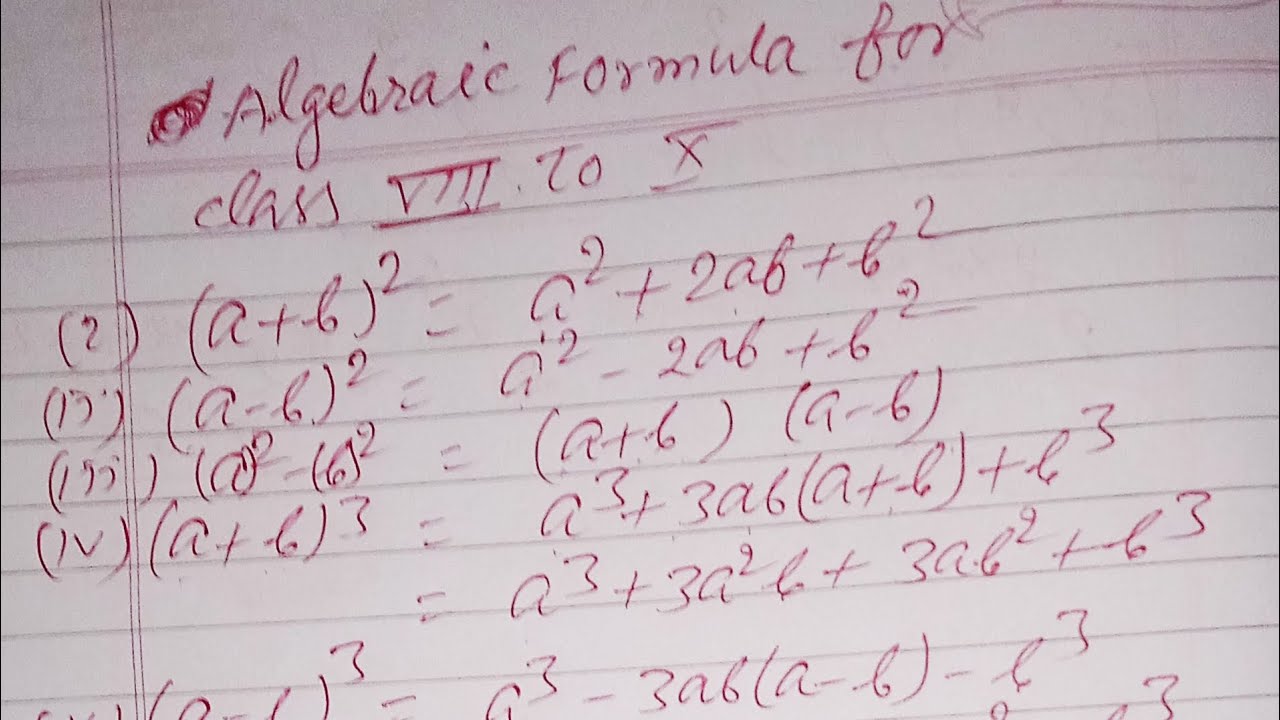 Algebraic Formula for
class VIII to X
(i) (a+b)² = a² + 2ab + b²
(ii) (a-b)² = a² - 2ab + b²
(iii) (a)² - (b)² = (a+b) (a-b)
(iv) (a+b)³ = a³ + 3ab(a+b) + b³
= a³ + 3a²b + 3ab² + b³
(a-b)³ = a³ - 3ab(a-b) - b³